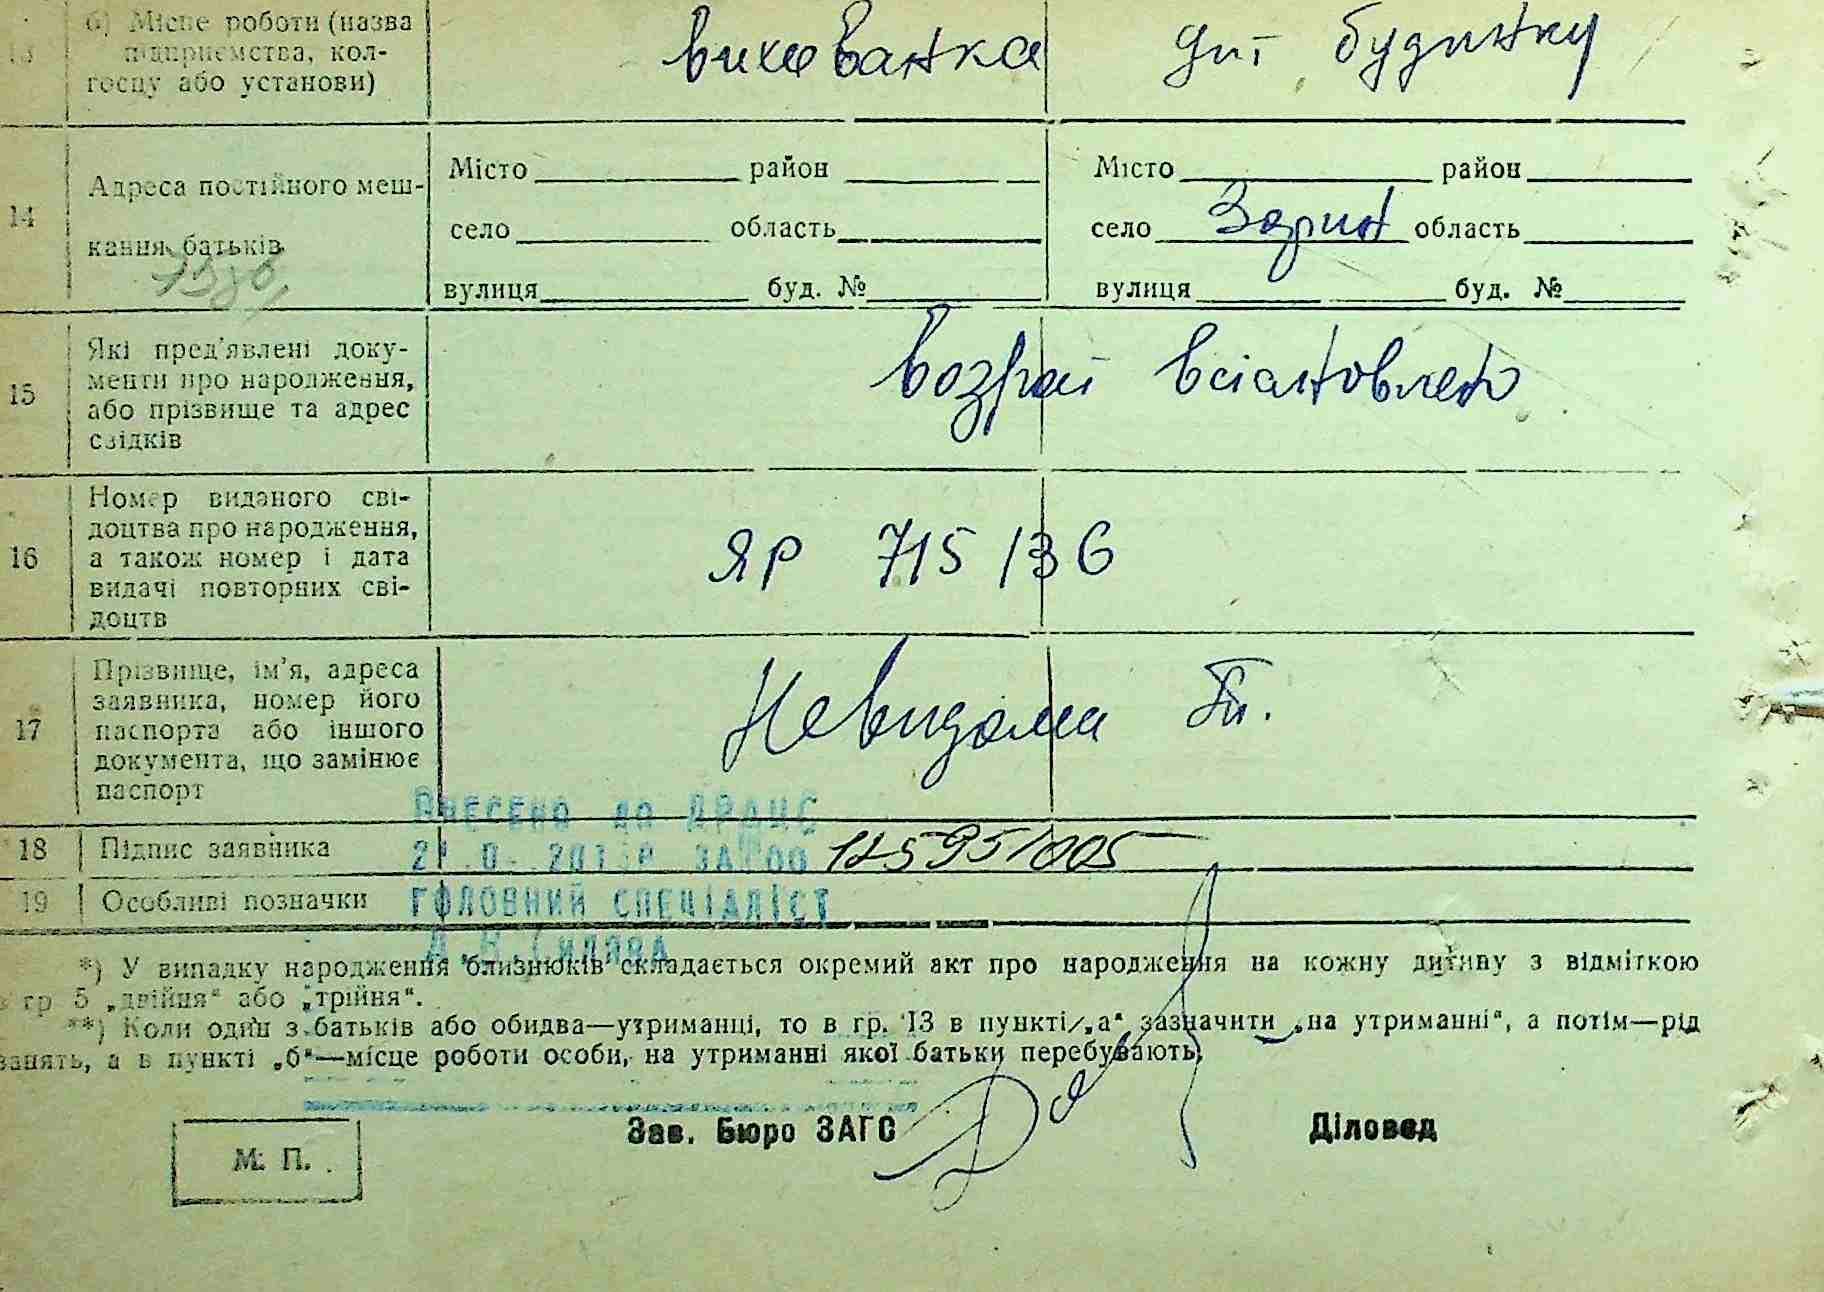 13 б) Місце роботи (назва
підприємства, кол-
госпу або установи)
вихованка дит будинку
14 Адреса постійного меш-
кання батьків
Місто район
село область
вулиця буд. №
Місто район
село Зорин область
вулиця буд. №
15 Які пред'явлені доку-
менти про народження,
або прізвище та адрес
свідків
возраст встановлено
16 Номер виданого сві-
доцтва про народження,
а також номер і дата
видачі повторних сві-
доцтв
ЯР 715136
17 Прізвище, ім'я, адреса
заявника, номер його
паспорта або іншого
документа, що замінює
паспорт
Невидома
Внесено до ДРАЦС
18 Підпис заявника
19 Особливі позначки
головний спеціаліст
*) У випадку народження близнюків складається окремий акт про народження на кожну дитину з відміткою
в гр 5 „двійня“ або „трійня“.
**) Коли один з батьків або обидва—утриманці, то в гр. 13 в пункті „а“ зазначити „на утриманні“, а потім—рід
занять, а в пункті „б“—місце роботи особи, на утриманні якої батьки перебувають.
Зав. Бюро ЗАГС Діловод
М. П.